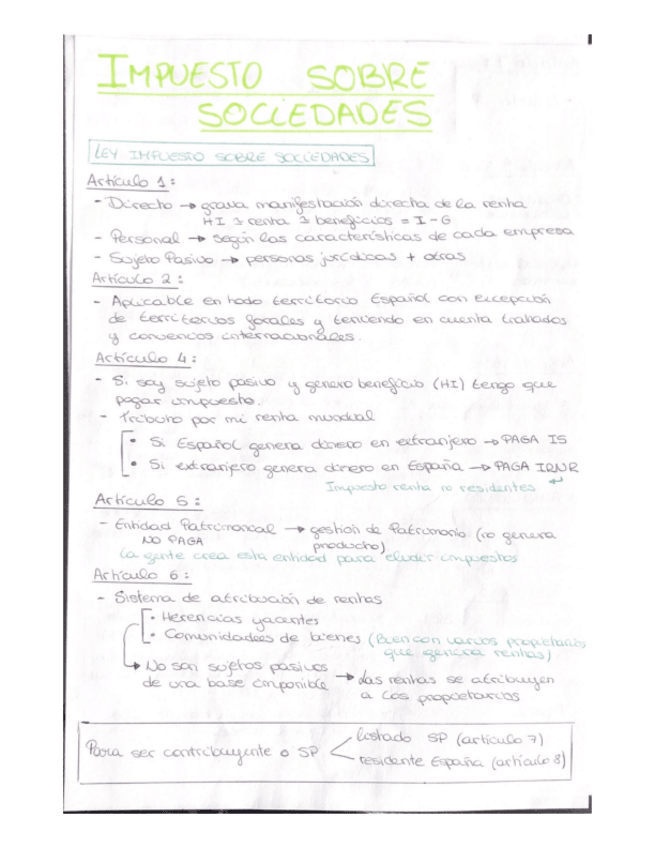 IMPUESTO SOBRE
SOCIEDADES
LEY IMPUESTO SOBRE SOCIEDADES
Artículo 1:
- Directo → grava manifestación directa de la renta
HI → renta → beneficios = I - G
- Personal → según las características de cada empresa
- Sujeto Pasivo → personas jurídicas + otras
Artículo 2:
- Aplicable en todo territorio Español con excepción
de territorios forales y teniendo en cuenta tratados
y convenios internacionales.
Artículo 4:
- Si soy sujeto pasivo y genero beneficio (HI) tengo que
pagar impuesto.
- Tributo por mi renta mundial
• Si Español genera dinero en extranjero → PAGA IS
• Si extranjero genera dinero en España → PAGA IRNR
Impuesto renta no residentes
Artículo 5:
- Entidad Patrimonial → gestión de Patrimonio (no genera
NO PAGA producto)
La gente crea esta entidad para eludir impuestos
Artículo 6:
- Sistema de atribución de rentas
• Herencias yacentes
• Comunidades de bienes (Bien con varios propietarios
que genera rentas)
→ No son sujetos pasivos → Las rentas se atribuyen
de una base imponible a los propietarios
Para ser contribuyente o SP
listado SP (artículo 7)
residente España (artículo 8)